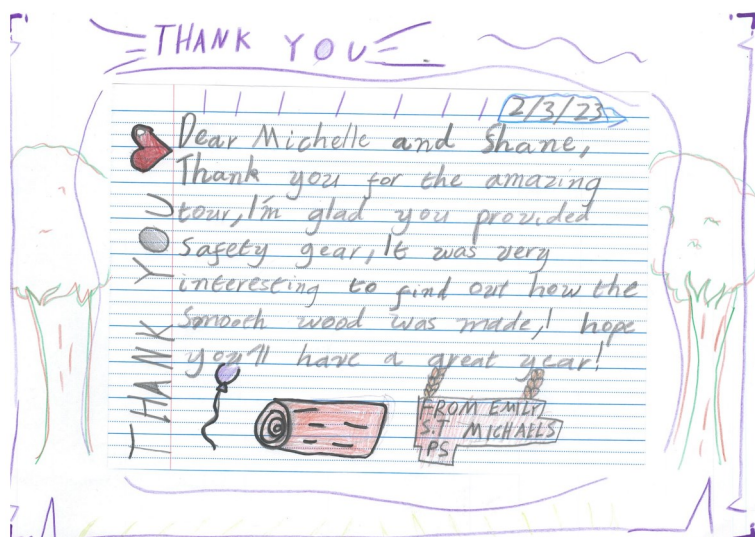 THANK YOU
2/3/23
THANK YOU
Dear Michelle and Shane,
Thank you for the amazing
tour, I'm glad you provided
Safety gear, It was very
interesting to find out how the
Smooth wood was made, I hope
you'll have a great year!
FROM EMILY
S.T MICHAELS
PS